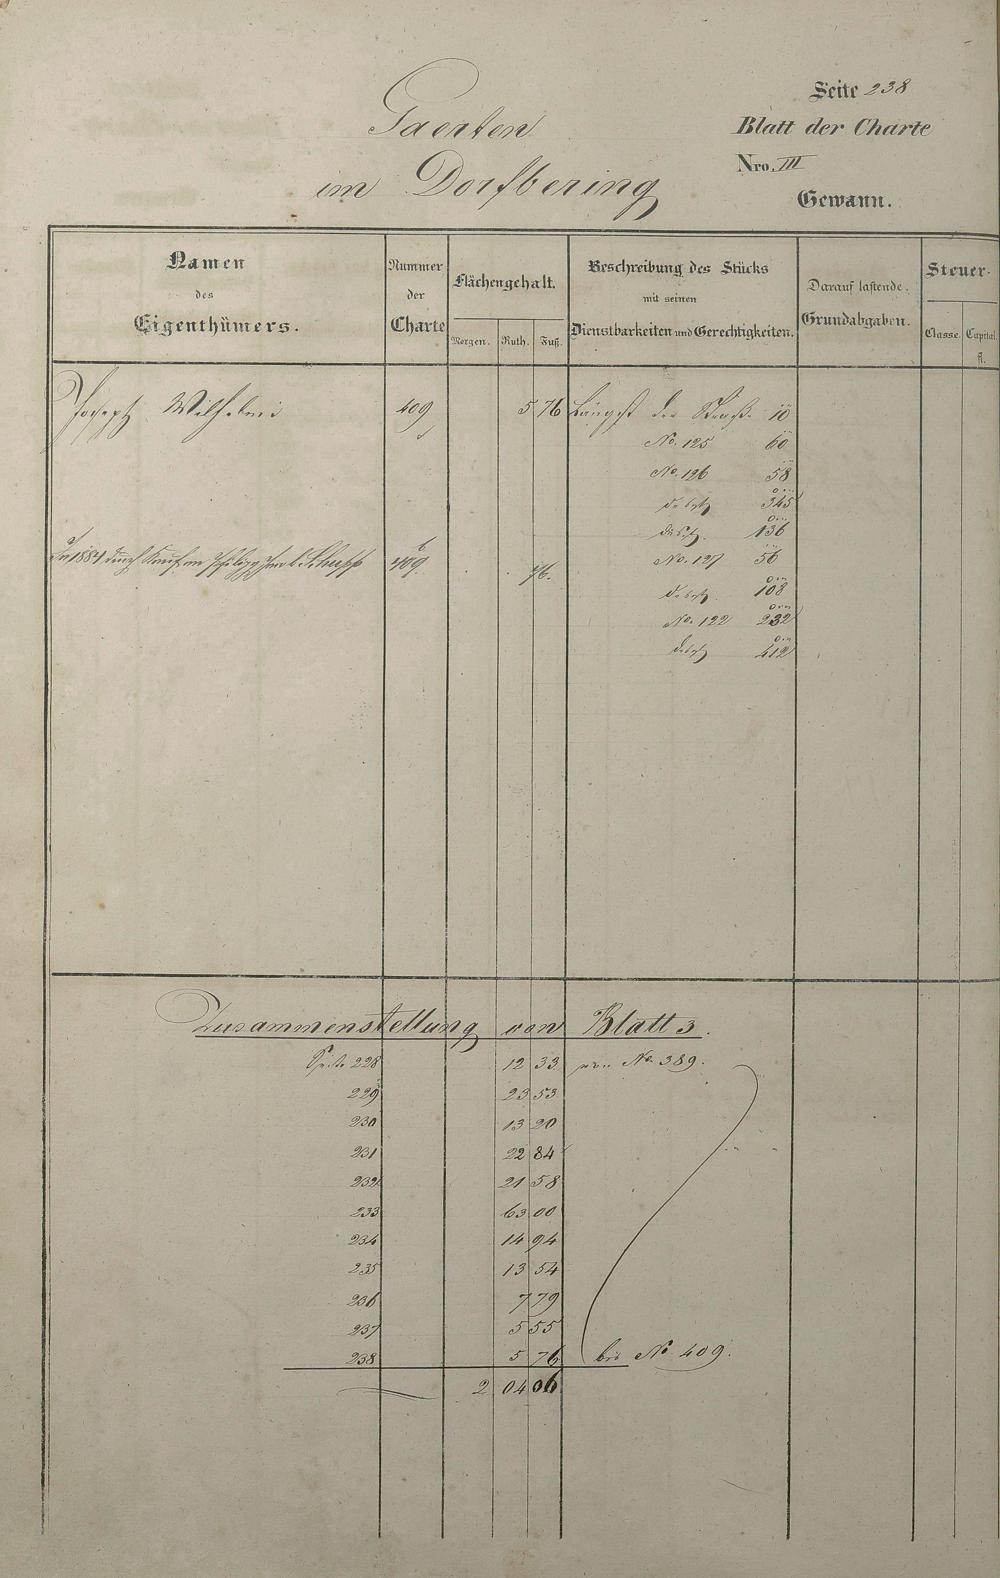 Seite 238
Gaerten
Blatt der Charte
Nro. III
im Dorfbering
Gewann.
Namen des Eigenthümers.
Nummer der Charte
Flächengehalt.
Morgen. Ruth. Fuß.
Beschreibung des Stücks mit seinen Dienstbarkeiten und Gerechtigkeiten.
Darauf lastende Grundabgaben.
Steuer-
Classe. Capital. fl.
Joseph Wilhelmi 409 5 76 Längst der Straße 10
No. 125 60
No. 126 58
345
136
In 1884 durch Kauf an 409 76. No. 127 56
108
No. 122 232
412
Zusammenstellung von Blatt 3.
Seite 228 12 33 von No. 389.
229 23 53
230 13 20
231 22 84
232 21 58
233 63 00
234 14 94
235 13 54
236 7 79
237 5 55
238 5 76 bis No 409.
2 04 06